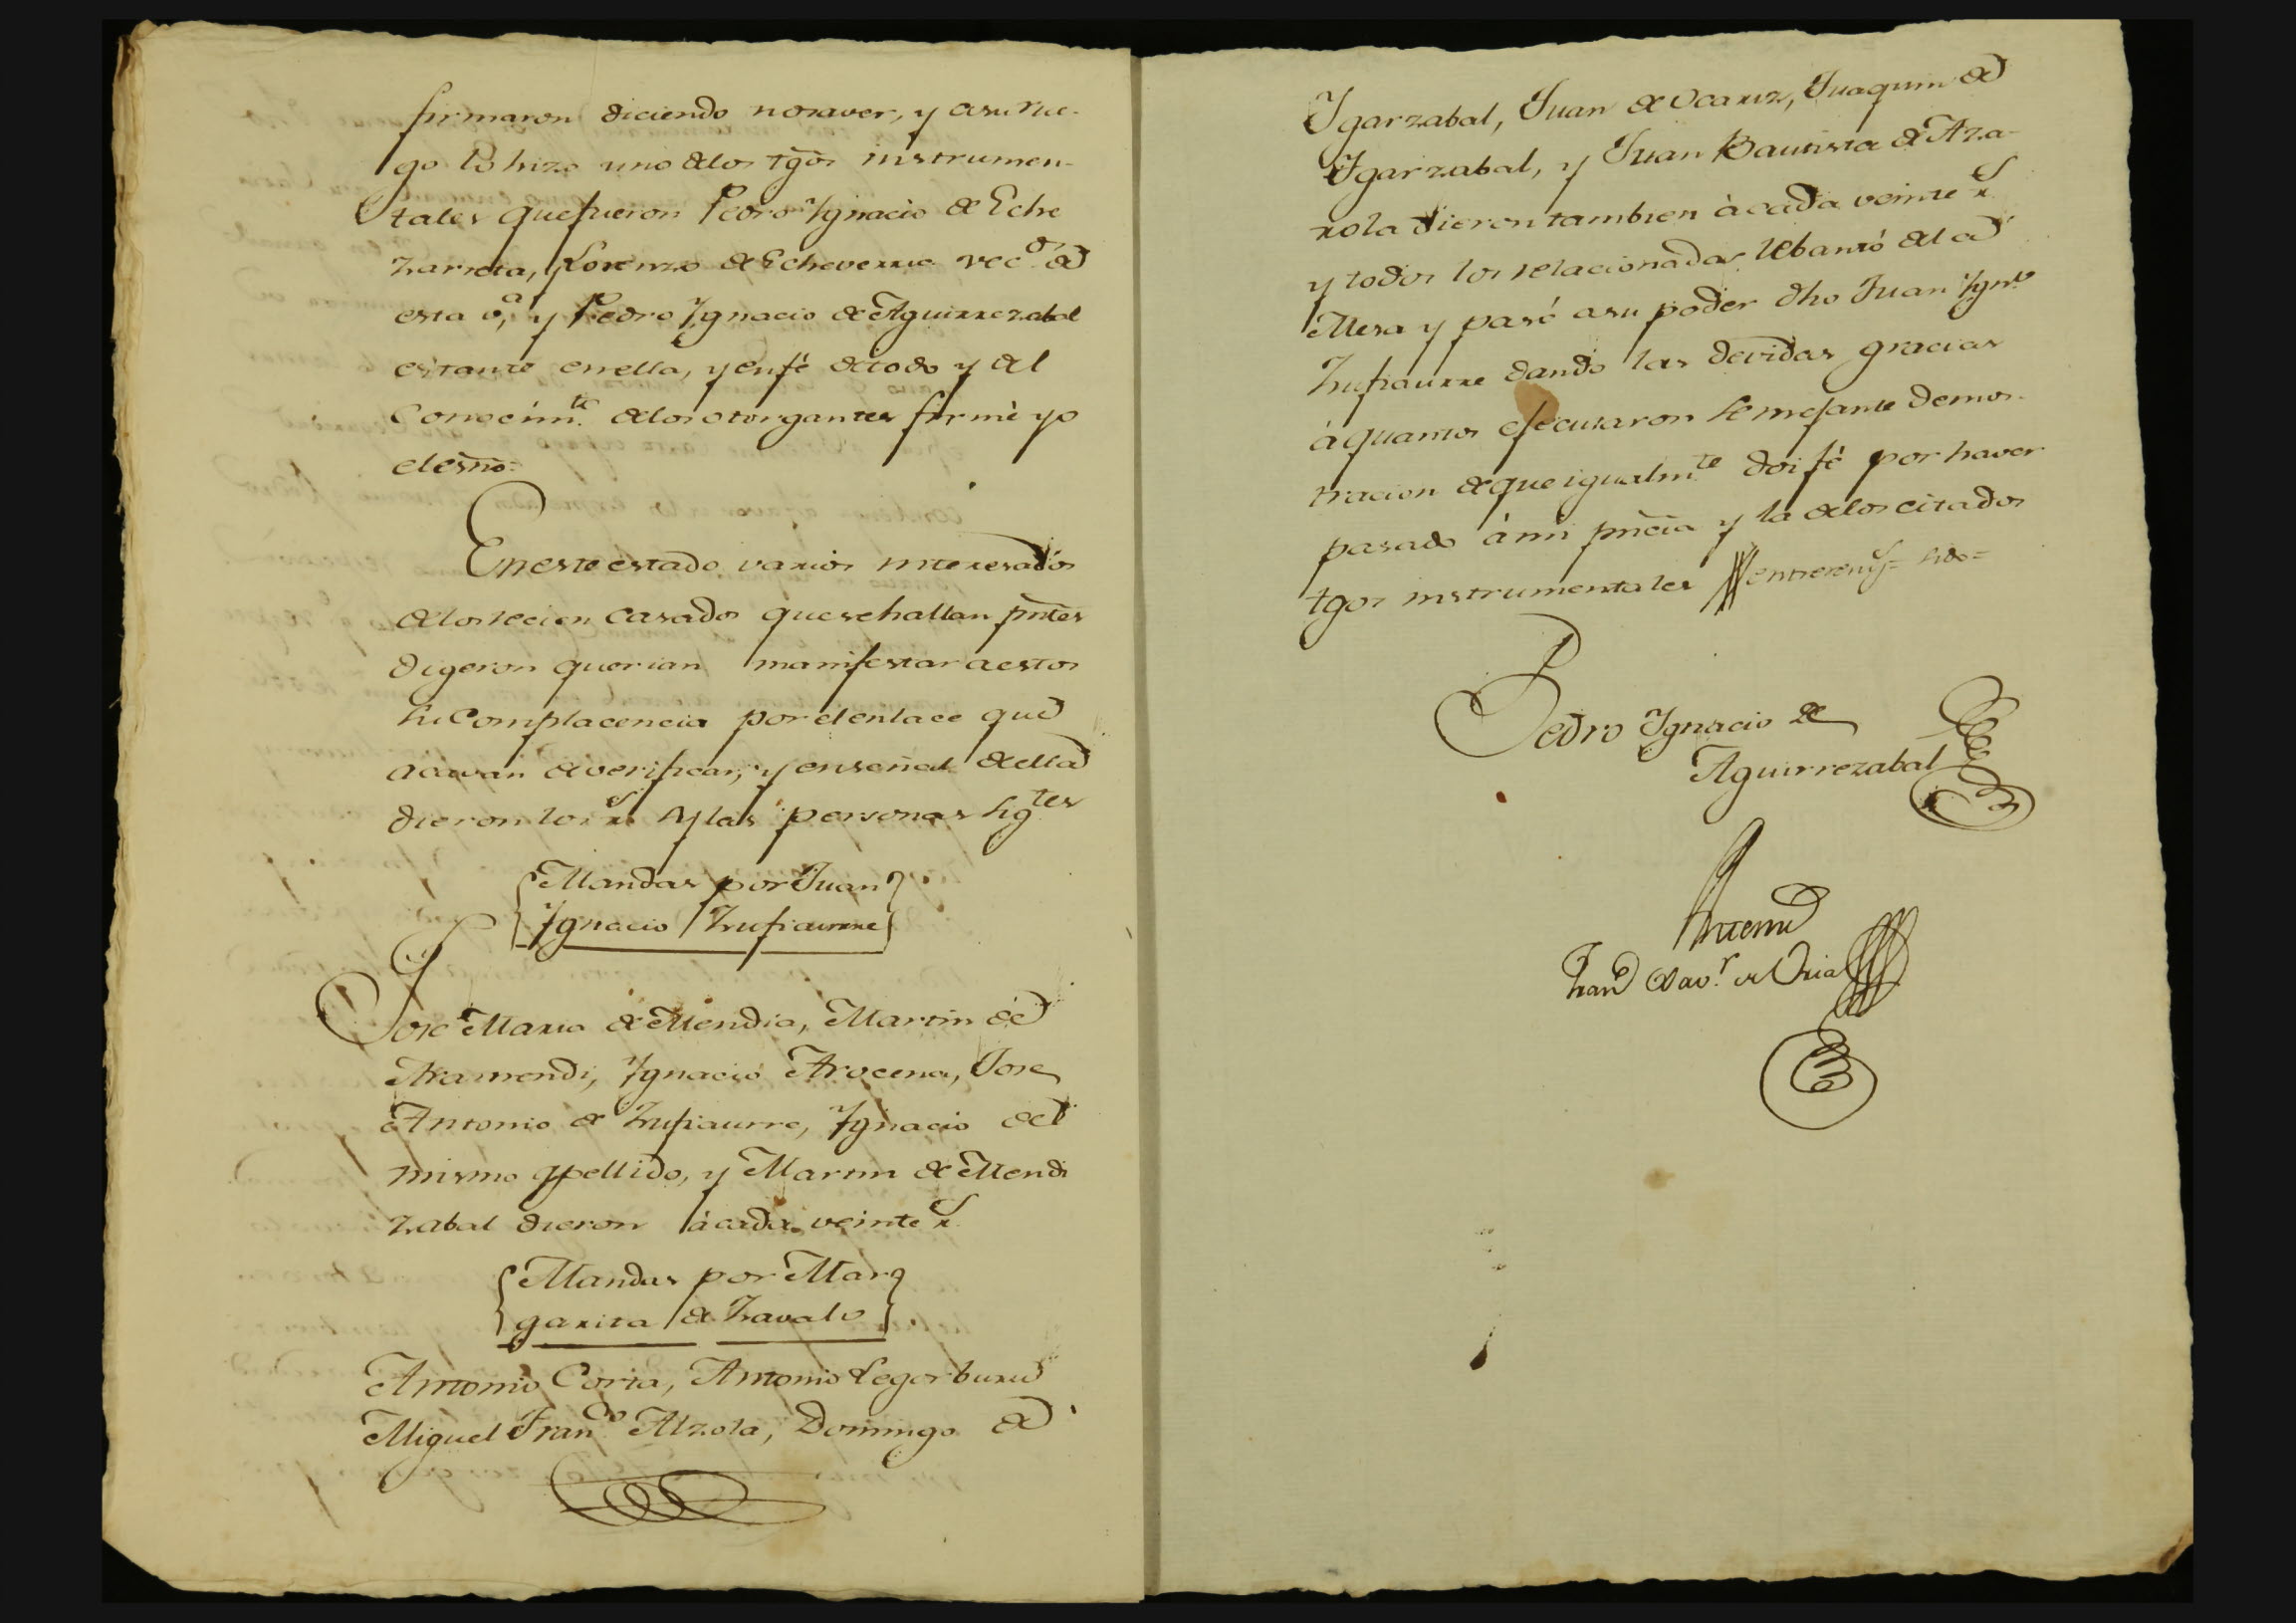 firmaron diciendo no saver, y asu rue-
go lo hizo uno delos tgõs instrumen-
tales que fueron Pedro Ygnacio de Eche
zarreta, Lorenzo de Echeverria vec.ˢ de
esta v.ª y Pedro Ygnacio de Aguirrezabal
estante en ella, y en fé de todo y del
Conocim.ᵗᵒ delos otorgantes firmè yo
el esño =
En este estado varios interesados
delos recien casados que se hallan pñtes
digeron querian manifestar a estos
su Complacencia por el enlace que
acavan de verificar, y en señal de ella
dieron los r.ˢ y las personas sig.ᵗᵉˢ
Mandas por Juan
Ygnacio Zufiaurre
Jose Maria de Mendia, Martin de
Aramendi, Ygnacio Arocena, Jose
Antonio de Zufiaurre, Ygnacio del
mismo apellido, y Martin de Mendi
zabal dieron à cada veinte r.ˢ
Mandas por Mar
garita de Zavala
Antonio Coria, Antonio Legorburu
Miguel Fran.ᶜᵒ Alzola, Domingo de
Ygarzabal, Juan de Ocariz, Juaquin de
Ygarzabal, y Juan Bautista de Aza-
rola dieron tambien à cada veinte r.ˢ
y todos los relacionados lebantó de la
Mesa y pasó a su poder dho Juan Ygn.º
Zufiaurre dando las devidas gracias
à quantos efecutaron semejante demos-
tracion de que igualm.ᵗᵉ doi fé por haver
pasado á mi pñcia y la de los citados
tgos instrumentales
Pedro Ygnacio de
Aguirrezabal
Antemi
Fran.ᶜᵒ Xav.ʳ de Oria